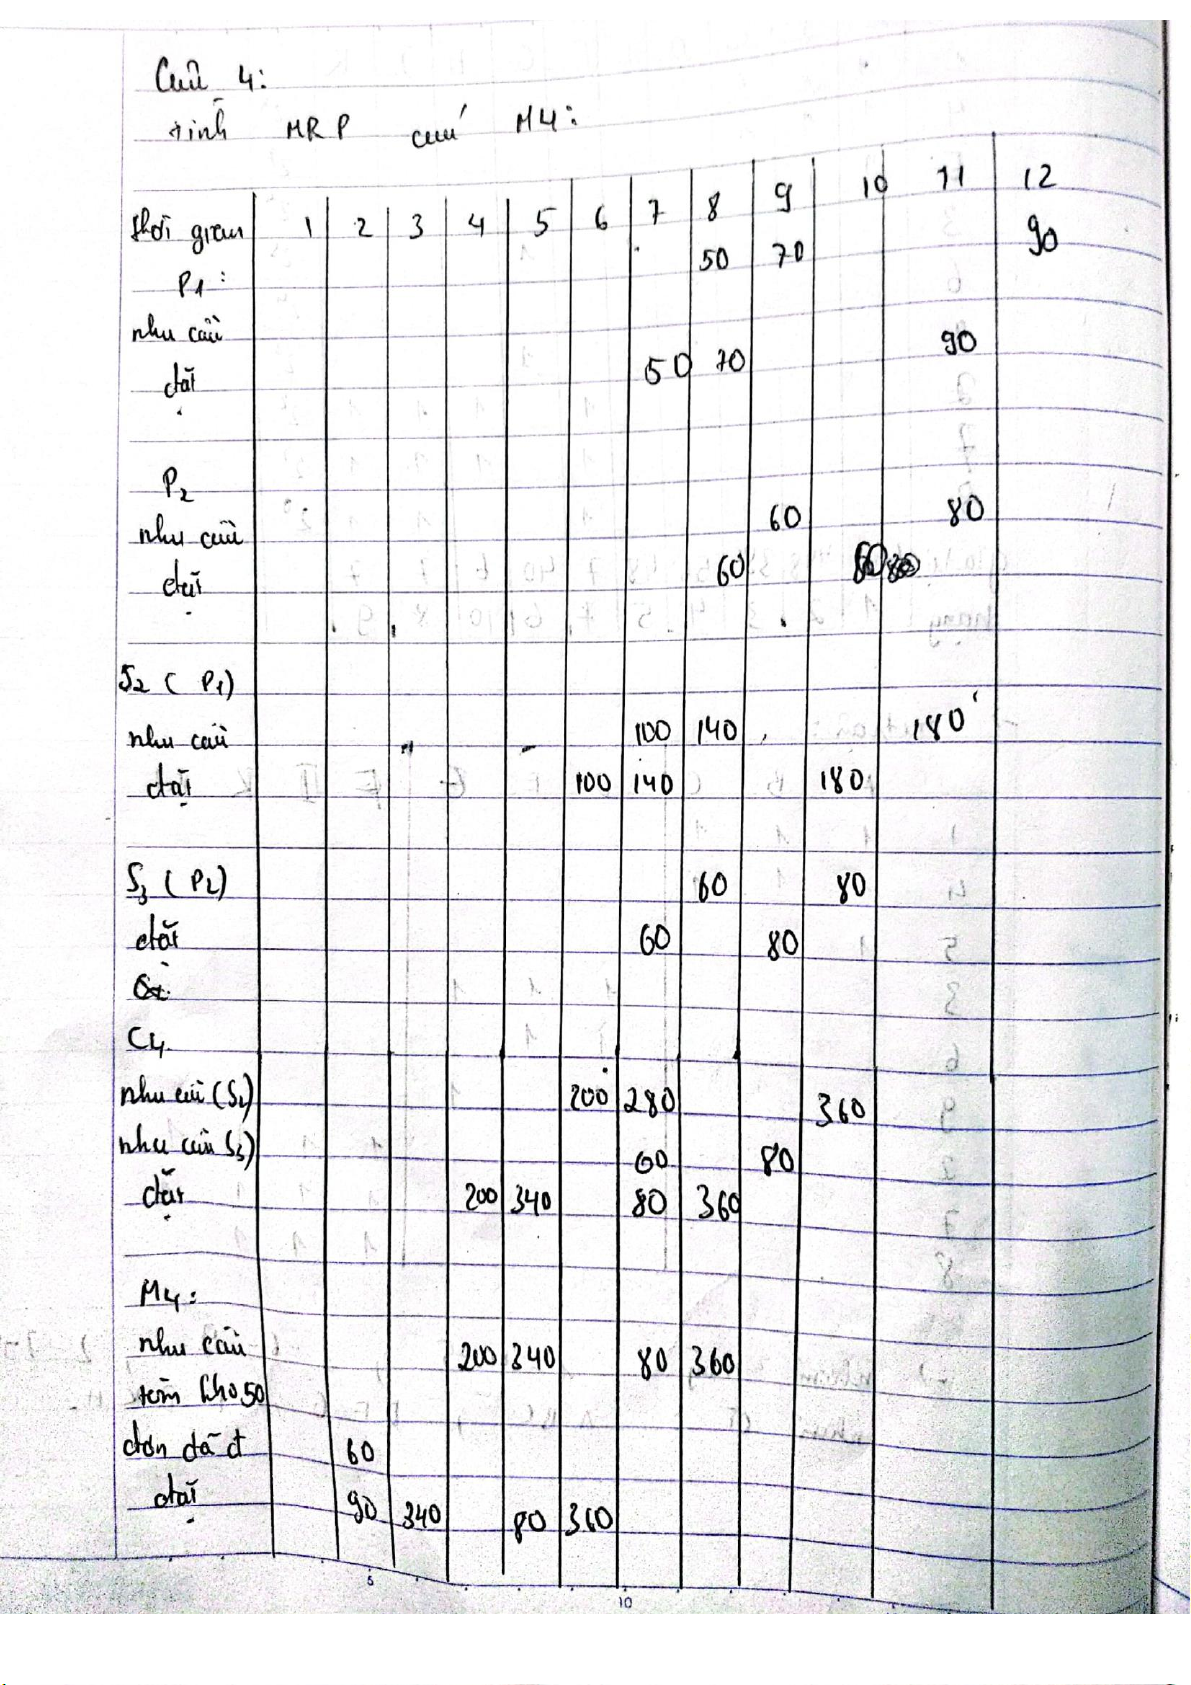 Câu 4:
tính MRP cuả M4:
thời gian 1 2 3 4 5 6 7 8 9 10 11 12
P1: 50 70 90
nhu cầu
đặt 50 70 90
P2
nhu cầu 60 80
đặt 60 80
S2 ( P1)
nhu cầu 100 140 180
đặt 100 140 180
S3 ( P2) 60 80
đặt 60 80
C4
nhu cầu (S2) 200 280 360
nhu cầu S3) 60 80
đặt 200 340 80 360
M4:
nhu cầu 200 340 80 360
tồn kho 50
đơn đã đ 60
đặt 90 340 80 360
5 10